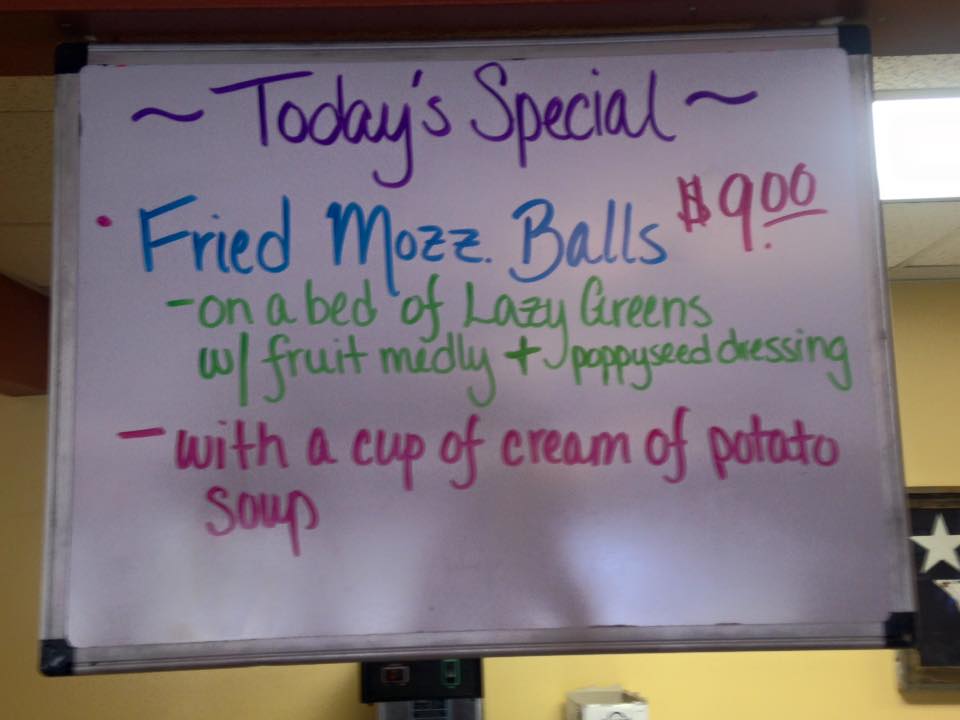 ~ Today's Special ~
• Fried Mozz. Balls $9.00
- on a bed of Lazy Greens
w/ fruit medly + poppyseed dressing
- with a cup of cream of potato
soup